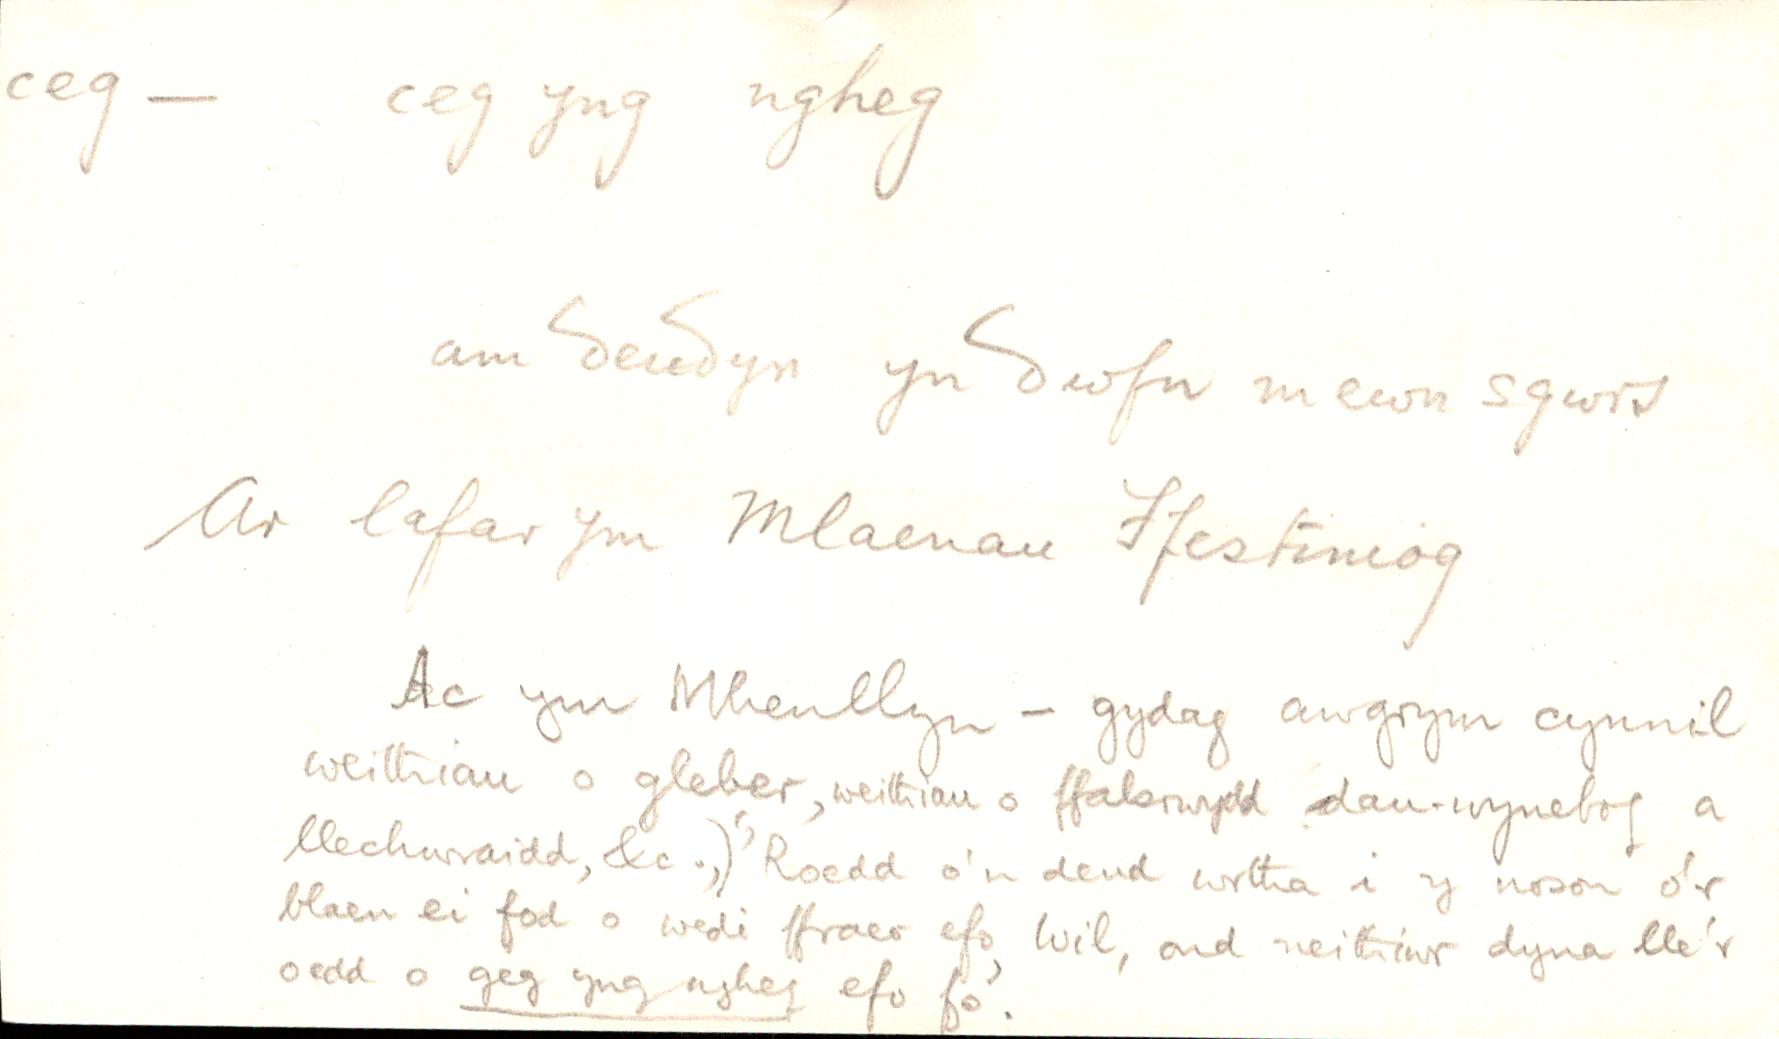 ceg — ceg yng ngheg
am ðeuðyn yn ðwfn mewn sgwrs
Ar lafar ym Mlaenau Ffestiniog
Ac ym Mhenllyn – gydag awgrym cynnil
weithiau o gleber, weithiau o ffalsrwydd dau-wynebog a
llechwraidd, &c.,) 'Roedd o'n deud wrtha i y noson o'r
blaen ei fod o wedi ffraeo efo Wil, ond neithiwr dyna lle'r
oedd o geg yng ngheg efo fo'.